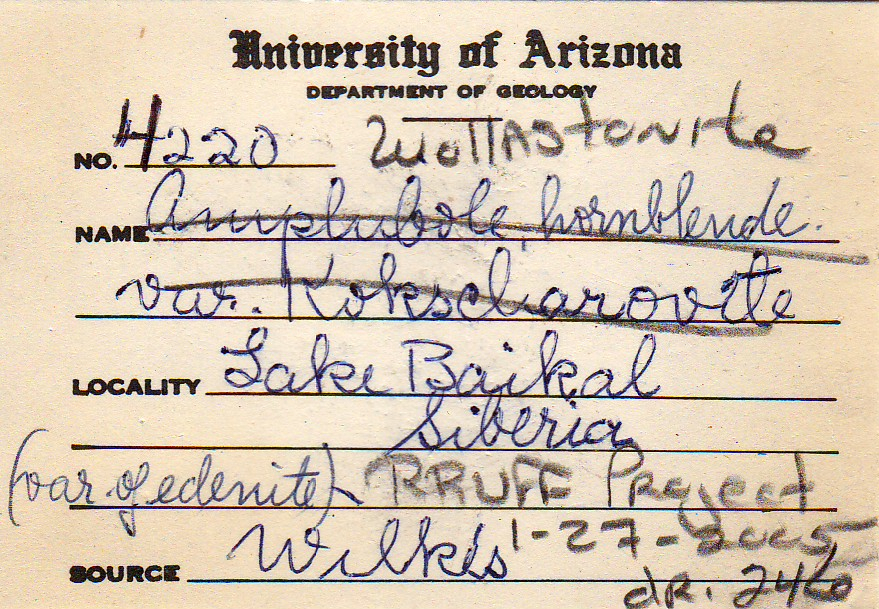 University of Arizona
DEPARTMENT OF GEOLOGY
NO. 4220 WollAStonite
NAME Amphibole, hornblende.
var. Kokscharovite
LOCALITY Lake Baikal
Siberia
(var of edenite) RRUFF Project
SOURCE Wilke's 1-27-2005
dr. 2460